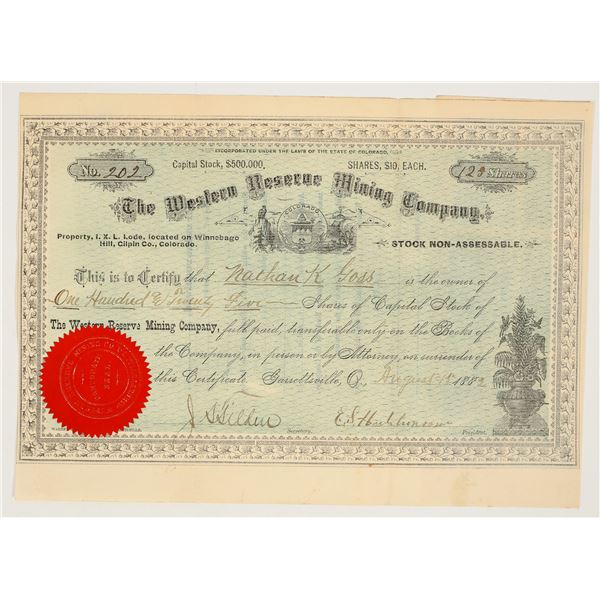 INCORPORATED UNDER THE LAWS OF THE STATE OF COLORADO,
No. 202
Capital Stock, $500.000,
SHARES, $10, EACH.
125 Shares
The Western Reserve Mining Company.
COLORADO
Property, I. X. L. Lode, located on Winnebago
Hill, Gilpin Co., Colorado.
STOCK NON-ASSESSABLE.
This is to Certify that Nathan K Goss is the owner of
One Hundred & Twenty Five Shares of Capital Stock of
The Western Reserve Mining Company, full paid, transferable only on the Books of
the Company, in person or by Attorney, on surrender of
this Certificate. Garrettsville, O. August 18 1882
J. S. Tilden
Secretary.
E. S. Hutchinson
President.